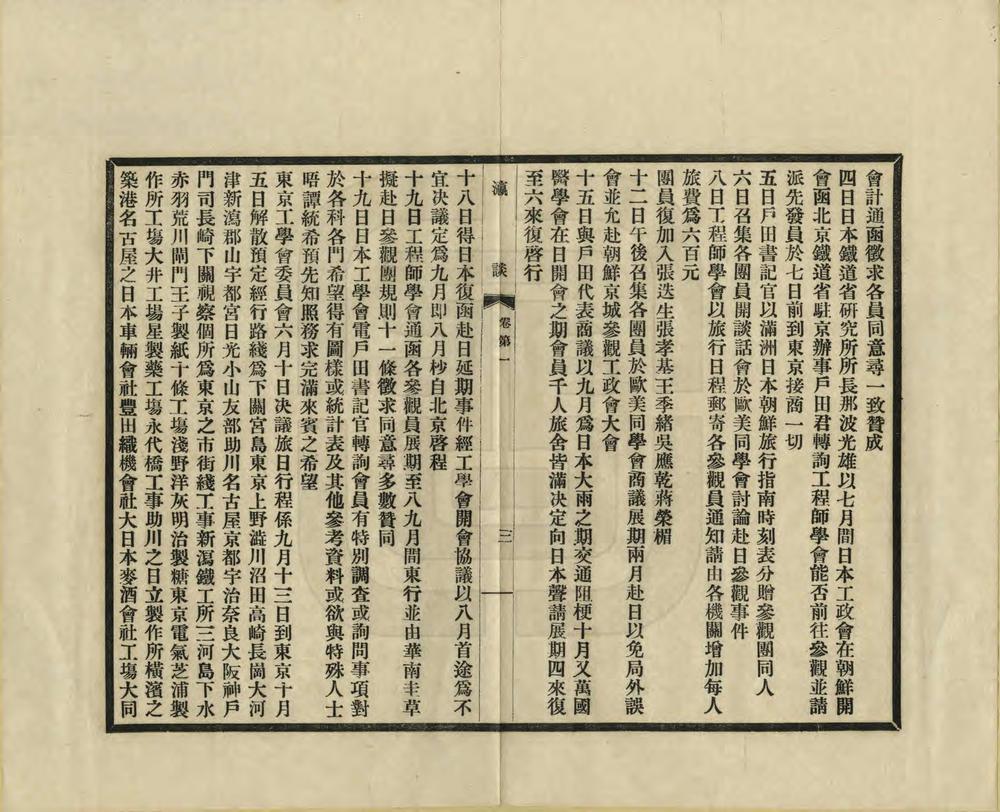 會計通函徵求各員同意尋一致贊成
四日日本鐵道省研究所所長那波光雄以七月間日本工政會在朝鮮開
會函北京鐵道省駐京辦事戶田君轉詢工程師學會能否前往參觀並請
派先發員於七日前到東京接商一切
五日戶田書記官以滿洲日本朝鮮旅行指南時刻表分贈參觀團同人
六日召集各團員開談話會於歐美同學會討論赴日參觀事件
八日工程師學會以旅行日程郵寄各參觀員通知請由各機關增加每人
旅費爲六百元
團員復加入張迭生張孝基王季緒吳應乾蔣榮楣
十二日午後召集各團員於歐美同學會商議展期兩月赴日以免局外誤
會並允赴朝鮮京城參觀工政會大會
十五日與戶田代表商議以九月爲日本大雨之期交通阻梗十月又萬國
醫學會在日開會之期會員千人旅舍皆滿決定向日本聲請展期四來復
至六來復啓行
瀛談
卷第一
三
十八日得日本復函赴日延期事件經工學會開會協議以八月首途爲不
宜決議定爲九月即八月杪自北京啓程
十九日工程師學會通函各參觀員展期至八九月間東行並由華南圭草
擬赴日參觀團規則十一條徵求同意尋多數贊同
十九日日本工學會電戶田書記官轉詢會員有特別調查或詢問事項對
於各科各門希望得有圖樣或統計表及其他參考資料或欲與特殊人士
晤譚統希預先知照務求完滿來賓之希望
東京工學會委員會六月十日決議旅日行程係九月十三日到東京十月
五日解散預定經行路綫爲下關宮島東京上野澁川沼田高崎長岡大河
津新瀉郡山宇都宮日光小山友部助川名古屋京都宇治奈良大阪神戶
門司長崎下關視察個所爲東京之市街綫工事新瀉鐵工所三河島下水
赤羽荒川閘門王子製紙十條工塲淺野洋灰明治製糖東京電氣芝浦製
作所工塲大井工塲星製藥工塲永代橋工事助川之日立製作所橫濱之
築港名古屋之日本車輛會社豐田織機會社大日本麥酒會社工塲大同